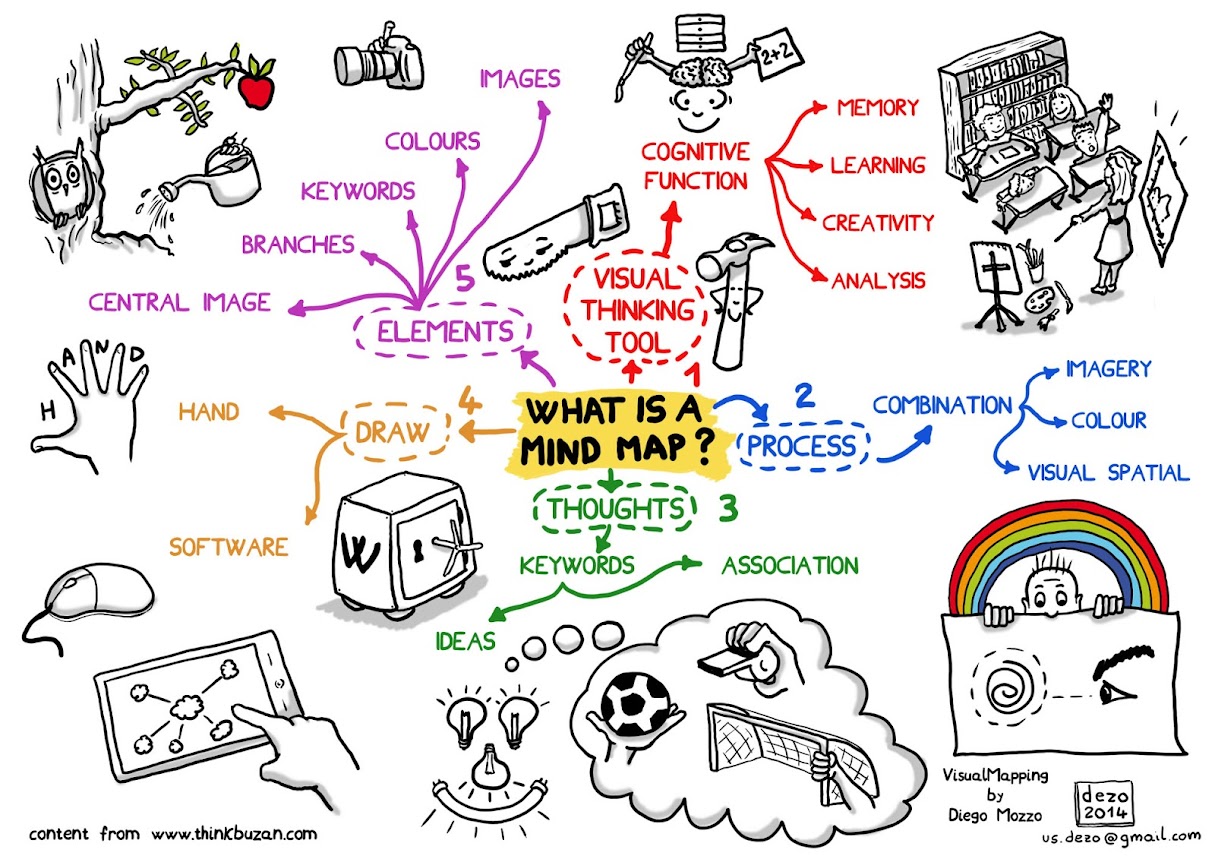 WHAT IS A
MIND MAP?
1
VISUAL
THINKING
TOOL
COGNITIVE
FUNCTION
MEMORY
LEARNING
CREATIVITY
ANALYSIS
2+2
2
PROCESS
COMBINATION
IMAGERY
COLOUR
VISUAL SPATIAL
3
THOUGHTS
KEYWORDS
ASSOCIATION
IDEAS
4
DRAW
HAND
SOFTWARE
HAND
W
5
ELEMENTS
CENTRAL IMAGE
BRANCHES
KEYWORDS
COLOURS
IMAGES
content from www.thinkbuzan.com
VisualMapping
by
Diego Mozzo
dezo
2014
us.dezo@gmail.com